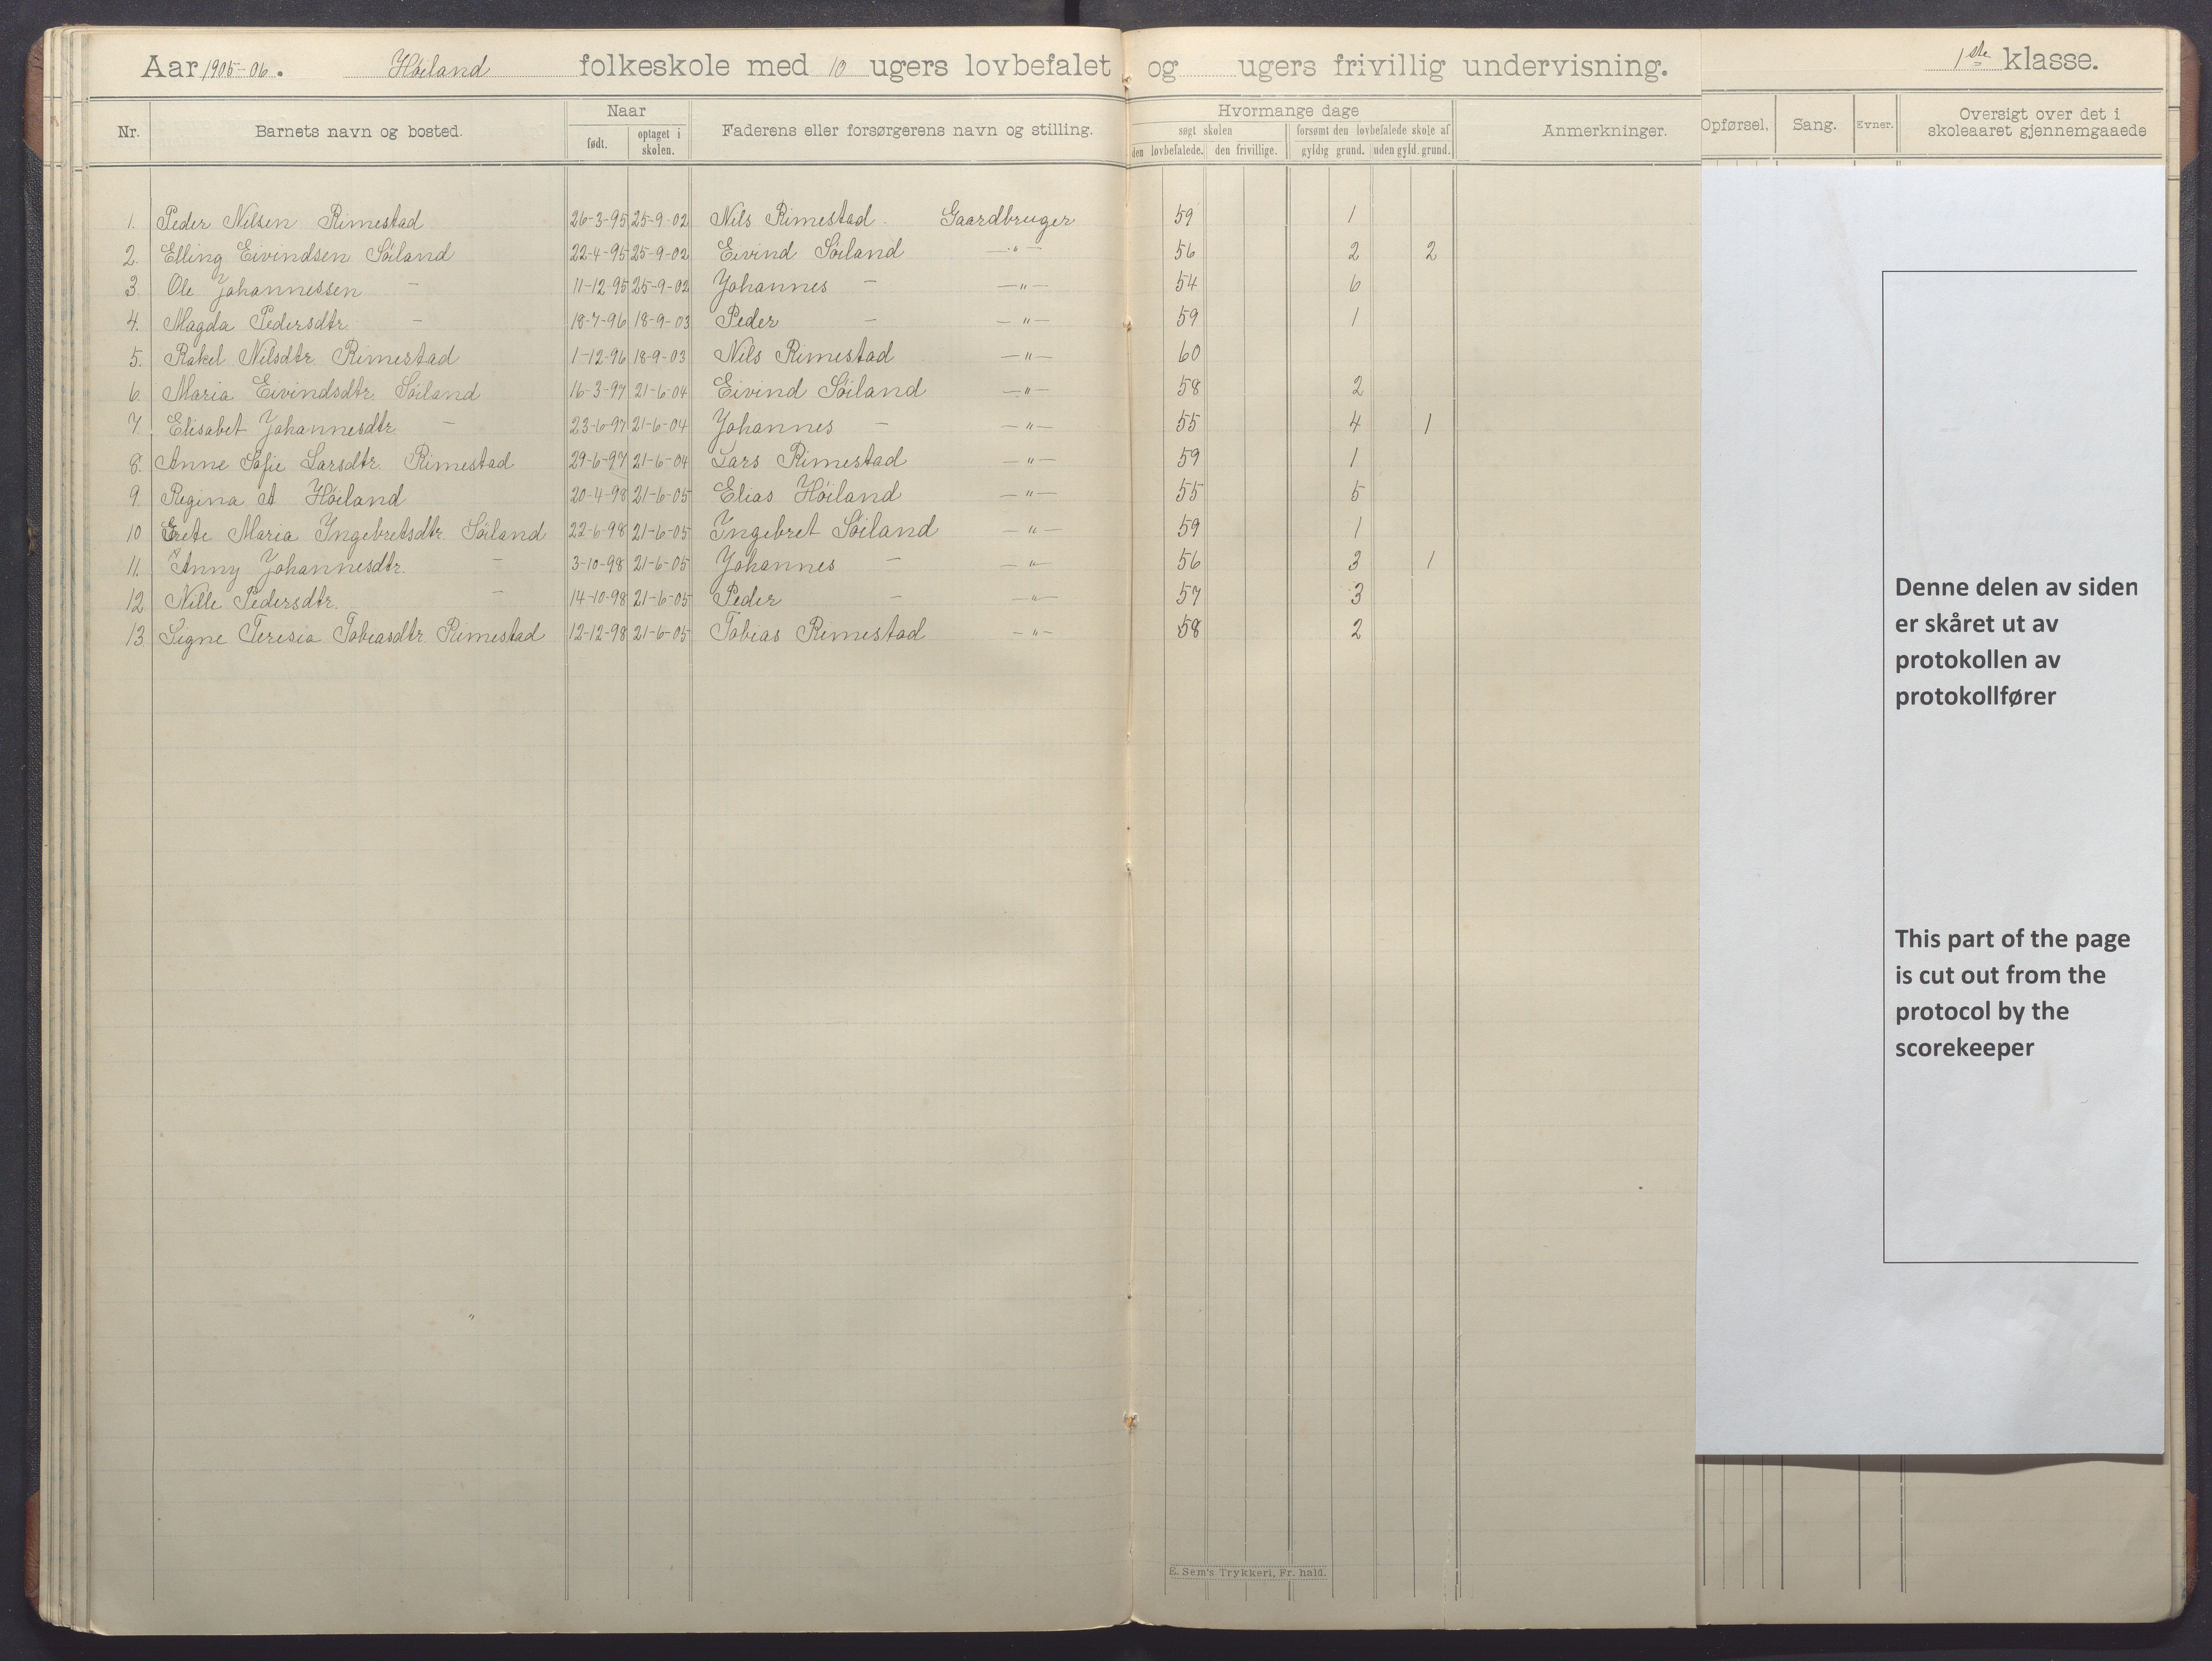 Aar 1905-06. Høiland folkeskole med 10 ugers lovbefalet og ugers frivillig undervisning. 1ste klasse.
Nr. Barnets navn og bosted. Naar født. optaget i skolen. Faderens eller forsørgerens navn og stilling. Hvormange dage søgt skolen den lovbefalede. den frivillige. forsømt den lovbefalede skole af gyldig grund. uden gyld. grund. Anmerkninger. Opførsel, Sang. Evner. Oversigt over det i skoleaaret gjennemgaaede
1. Peder Nilsen Rimestad 26-3-95 25-9-02 Nils Rimestad Gaardbruger 59 1
2. Elling Eivindsen Söiland 22-4-95 25-9-02 Eivind Söiland —"— 56 2 2
3. Ole Johannessen — 11-12-95 25-9-02 Johannes — —"— 54 6
4. Magda Pedersdtr. — 18-7-96 18-9-03 Peder — —"— 59 1
5. Rakel Nilsdtr. Rimestad 1-12-96 18-9-03 Nils Rimestad —"— 60
6. Maria Eivindsdtr. Söiland 16-3-97 21-6-04 Eivind Söiland —"— 58 2
7. Elisabet Johannesdtr. — 23-6-97 21-6-04 Johannes — —"— 55 4 1
8. Anne Sofie Larsdtr. Rimestad 29-6-97 21-6-04 Lars Rimestad —"— 59 1
9. Regina A Höiland 20-4-98 21-6-05 Elias Höiland —"— 55 5
10 Grete Maria Ingebretsdtr. Söiland 22-6-98 21-6-05 Ingebret Söiland —"— 59 1
11. Anny Johannesdtr. — 3-10-98 21-6-05 Johannes — —"— 56 3 1
12 Nille Pedersdtr. — 14-10-98 21-6-05 Peder — —"— 57 3
13 Signe Teresia Tobiasdtr. Rimestad 12-12-98 21-6-05 Tobias Rimestad —"— 58 2
Denne delen av siden
er skåret ut av
protokollen av
protokollfører
This part of the page
is cut out from the
protocol by the
scorekeeper
E. Sem's Trykkeri, Fr. hald.